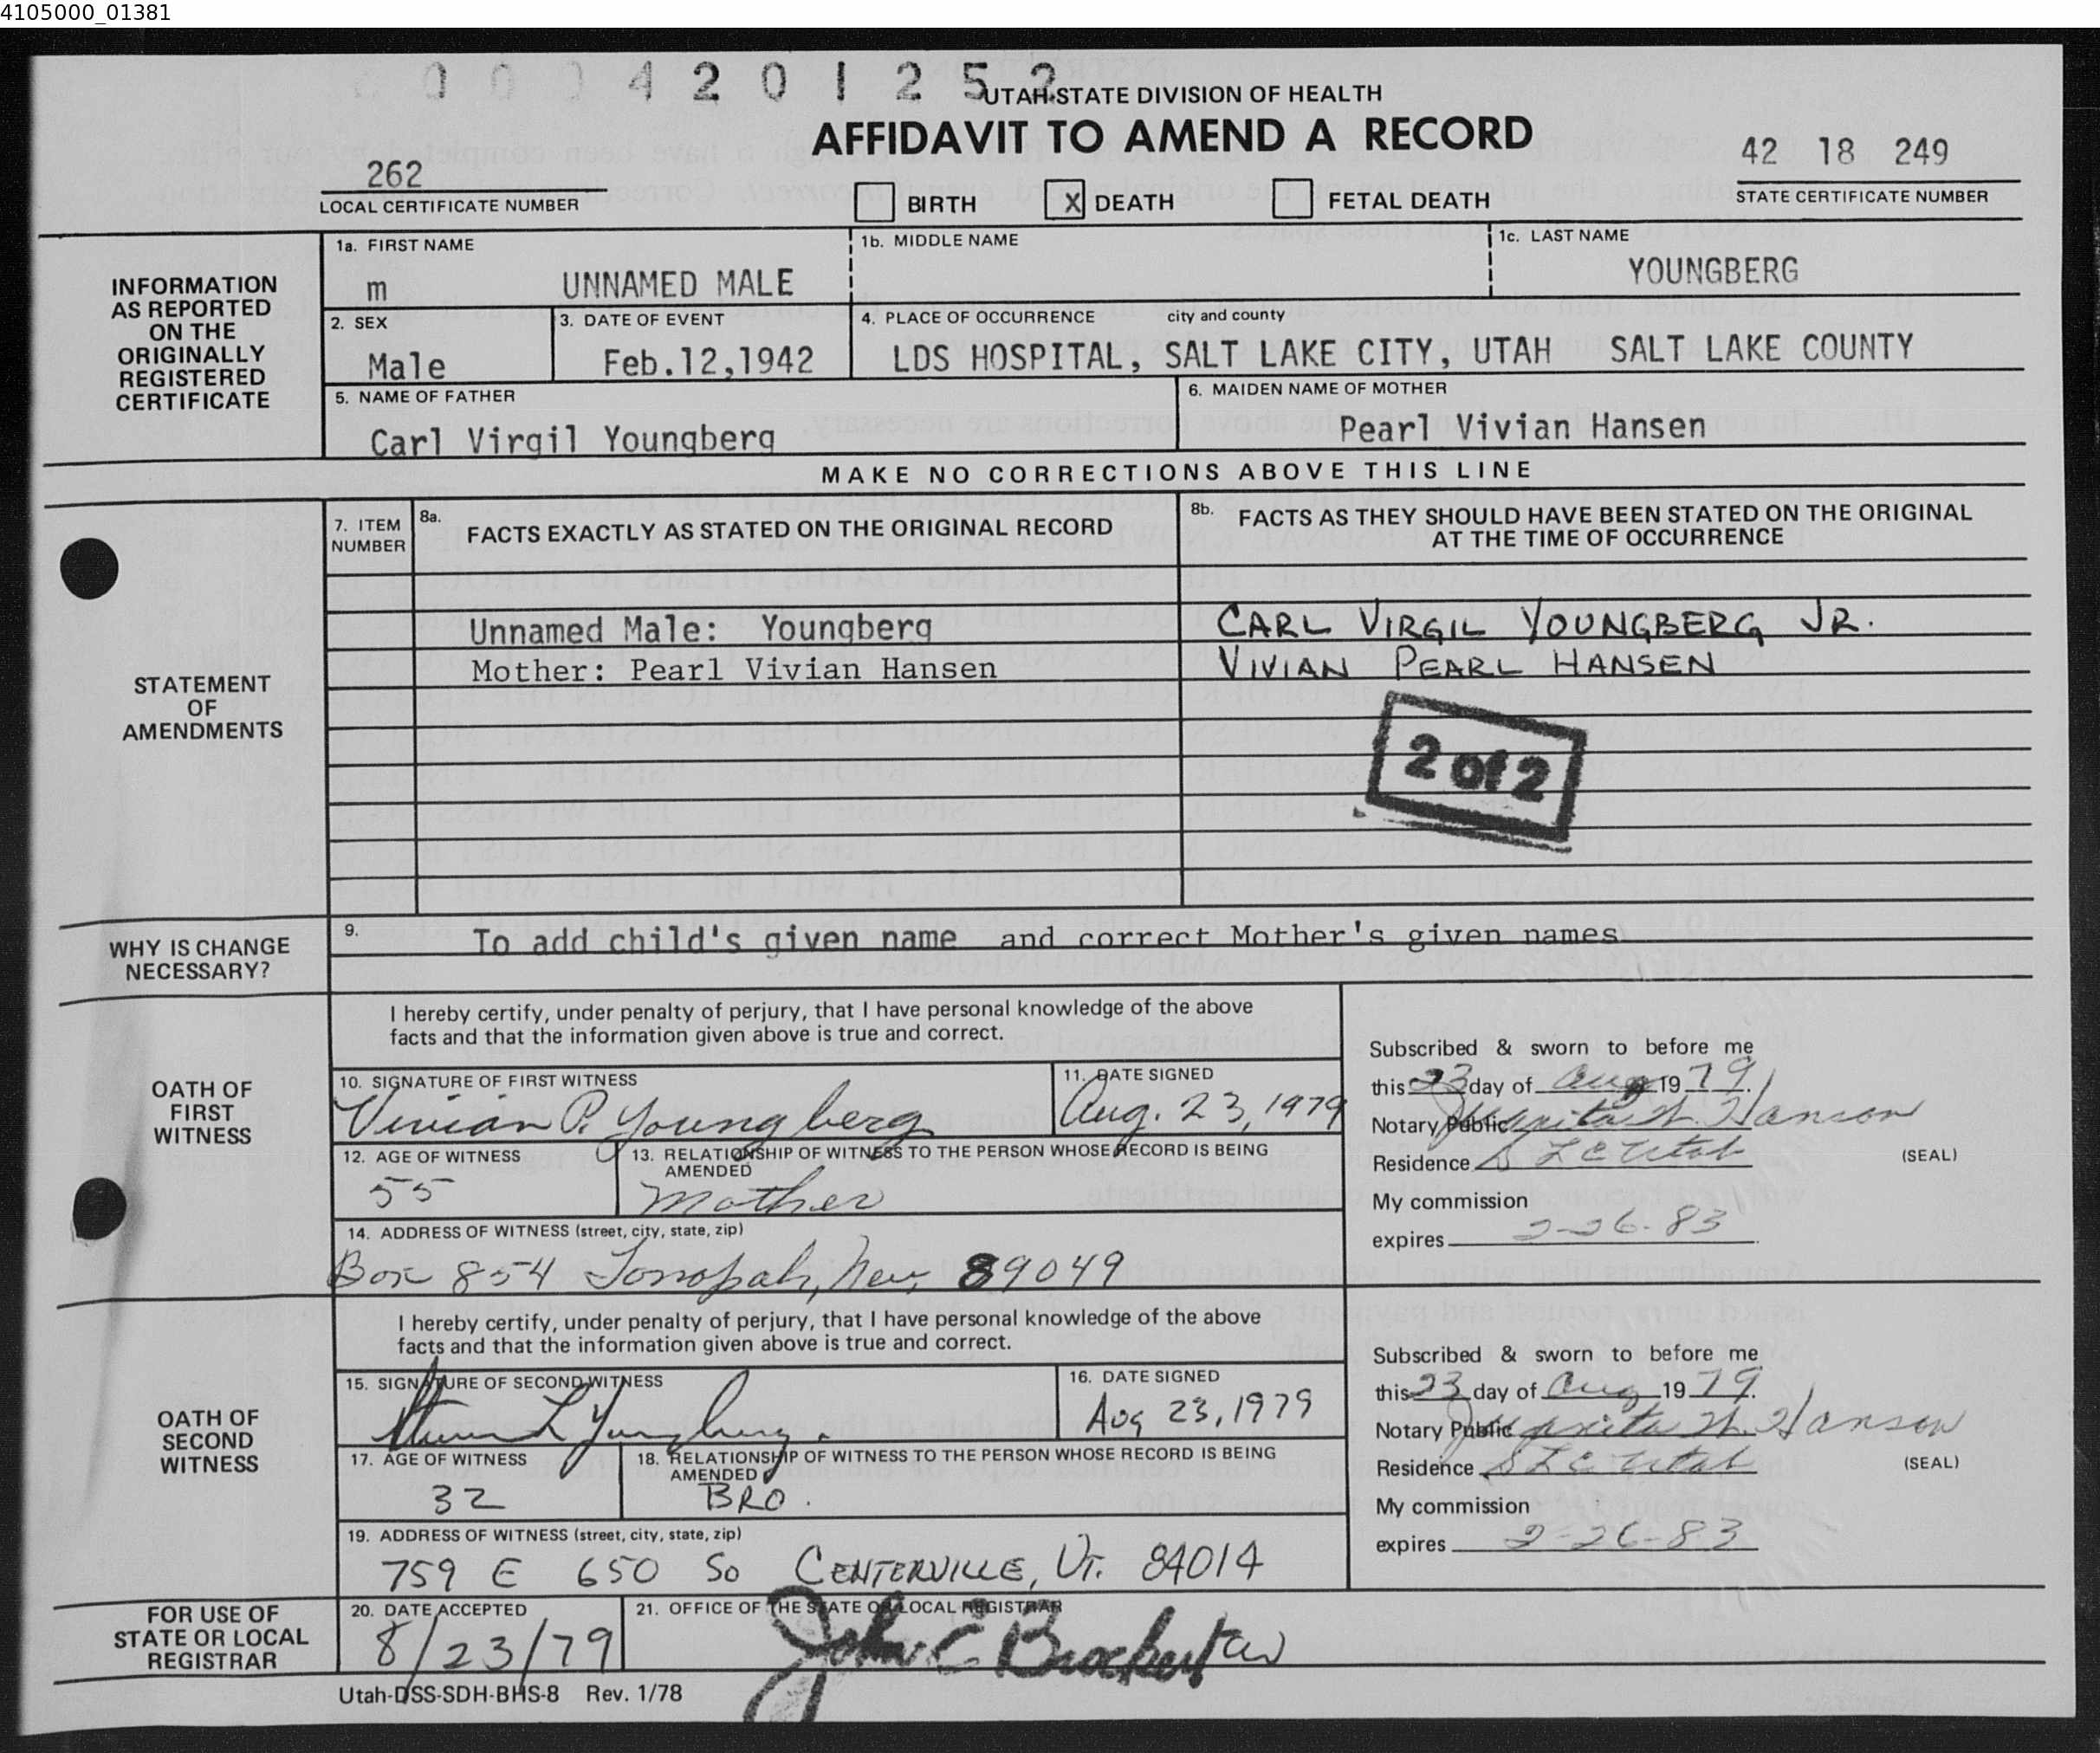 4105000_01381
0 0 0 4 2 0 1 2 5 2
UTAH STATE DIVISION OF HEALTH
AFFIDAVIT TO AMEND A RECORD
262
LOCAL CERTIFICATE NUMBER
BIRTH
X DEATH
FETAL DEATH
42 18 249
STATE CERTIFICATE NUMBER
INFORMATION
AS REPORTED
ON THE
ORIGINALLY
REGISTERED
CERTIFICATE
1a. FIRST NAME
m UNNAMED MALE
1b. MIDDLE NAME
1c. LAST NAME
YOUNGBERG
2. SEX
Male
3. DATE OF EVENT
Feb.12,1942
4. PLACE OF OCCURRENCE city and county
LDS HOSPITAL, SALT LAKE CITY, UTAH SALT LAKE COUNTY
5. NAME OF FATHER
Carl Virgil Youngberg
6. MAIDEN NAME OF MOTHER
Pearl Vivian Hansen
MAKE NO CORRECTIONS ABOVE THIS LINE
STATEMENT
OF
AMENDMENTS
7. ITEM
NUMBER
8a. FACTS EXACTLY AS STATED ON THE ORIGINAL RECORD
8b. FACTS AS THEY SHOULD HAVE BEEN STATED ON THE ORIGINAL
AT THE TIME OF OCCURRENCE
Unnamed Male: Youngberg
CARL VIRGIL YOUNGBERG JR.
Mother: Pearl Vivian Hansen
VIVIAN PEARL HANSEN
2 of 2
WHY IS CHANGE
NECESSARY?
9. To add child's given name and correct Mother's given names
OATH OF
FIRST
WITNESS
I hereby certify, under penalty of perjury, that I have personal knowledge of the above
facts and that the information given above is true and correct.
10. SIGNATURE OF FIRST WITNESS
Vivian P. Youngberg
11. DATE SIGNED
Aug. 23, 1979
12. AGE OF WITNESS
55
13. RELATIONSHIP OF WITNESS TO THE PERSON WHOSE RECORD IS BEING
AMENDED
Mother
14. ADDRESS OF WITNESS (street, city, state, zip)
Box 854 Tonopah, Nev, 89049
Subscribed & sworn to before me
this 23 day of Aug 19 79.
Notary Public Juanita N. Hanson
Residence S L C Utah
(SEAL)
My commission
expires 2-26-83
OATH OF
SECOND
WITNESS
I hereby certify, under penalty of perjury, that I have personal knowledge of the above
facts and that the information given above is true and correct.
15. SIGNATURE OF SECOND WITNESS
L Youngberg
16. DATE SIGNED
Aug 23, 1979
17. AGE OF WITNESS
32
18. RELATIONSHIP OF WITNESS TO THE PERSON WHOSE RECORD IS BEING
AMENDED
BRO.
19. ADDRESS OF WITNESS (street, city, state, zip)
759 E 650 So CENTERVILLE, UT. 84014
Subscribed & sworn to before me
this 23 day of Aug 19 79.
Notary Public Juanita N. Hanson
Residence S L C Utah
(SEAL)
My commission
expires 2-26-83
FOR USE OF
STATE OR LOCAL
REGISTRAR
20. DATE ACCEPTED
8/23/79
21. OFFICE OF THE STATE OR LOCAL REGISTRAR
John C Brockert
Utah-DSS-SDH-BHS-8 Rev. 1/78